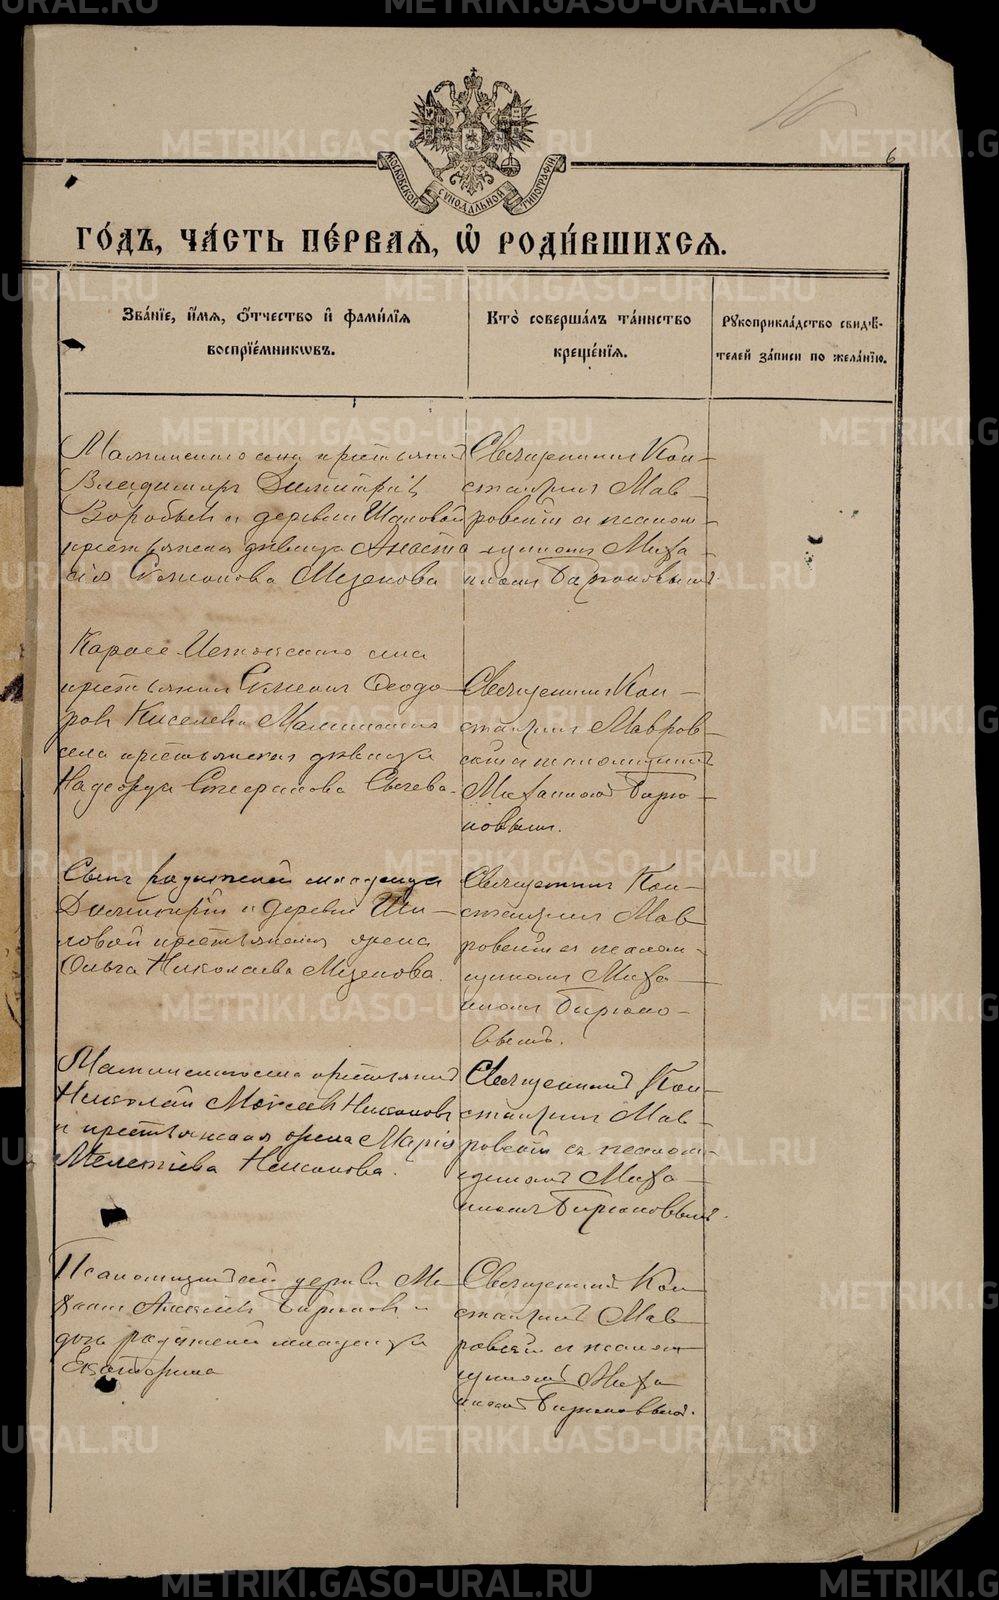 6
МОСКОВСКОЙ СУНОДАЛЬНОЙ ТИПОГРАФІИ
ГО́ДЪ, ЧА́СТЬ ПЕ́РВАѦ, Ѡ҆ РОДИ́ВШИХСѦ.
Зва́нїе, и҆́мѧ, ѻ҆́тчество и҆ фами́лїѧ
воспрїе́мникѡвъ.
Кто̀ соверша́лъ та́инство
креще́нїѧ.
Рꙋкоприкла́дство свидѣ́-
телей за́писи по жела́нїю.
Маминского села крестьянин
Владимиръ Димитріевъ
Воробьев и деревни Шиловой
крестьянская девица Анаста
сія Симонова Мезенова
Священникъ Кон-
стантин Мав-
ровскій с псалом-
щиком Миха-
илом Бирюковым.
села
крестьянин Симеон Феодо-
ров Киселев и Маминского
села крестьянская девица
Надежда Стефанова Сычева.
Священник Кон-
стантин Мавров-
скій с псаломщиком
Михаилом Бирю-
ковым.
Сын родителей младенца
Димитрій и деревни Ши-
ловой крестьянская жена
Ольга Николаева Мезенова.
Священник Кон-
стантин Мав-
ровскій с псалом-
щиком Миха-
илом Бирюко-
вым.
Маминского села крестьянин
Николай Моисеев Никонов
и крестьянская жена Марія
Мелетіева Никонова.
Священник Кон-
стантин Мав-
ровскій с псалом-
щиком Миха-
илом Бирюковым.
Псаломщик сей церкви Ми-
хаил Алексеев Бирюков и
дочь родителей младенца
Екатерина
Священник Кон
стантин Мав-
ровскій с псалом
щиком Миха
илом Бирюковым.
METRIKI.GASO-URAL.RU